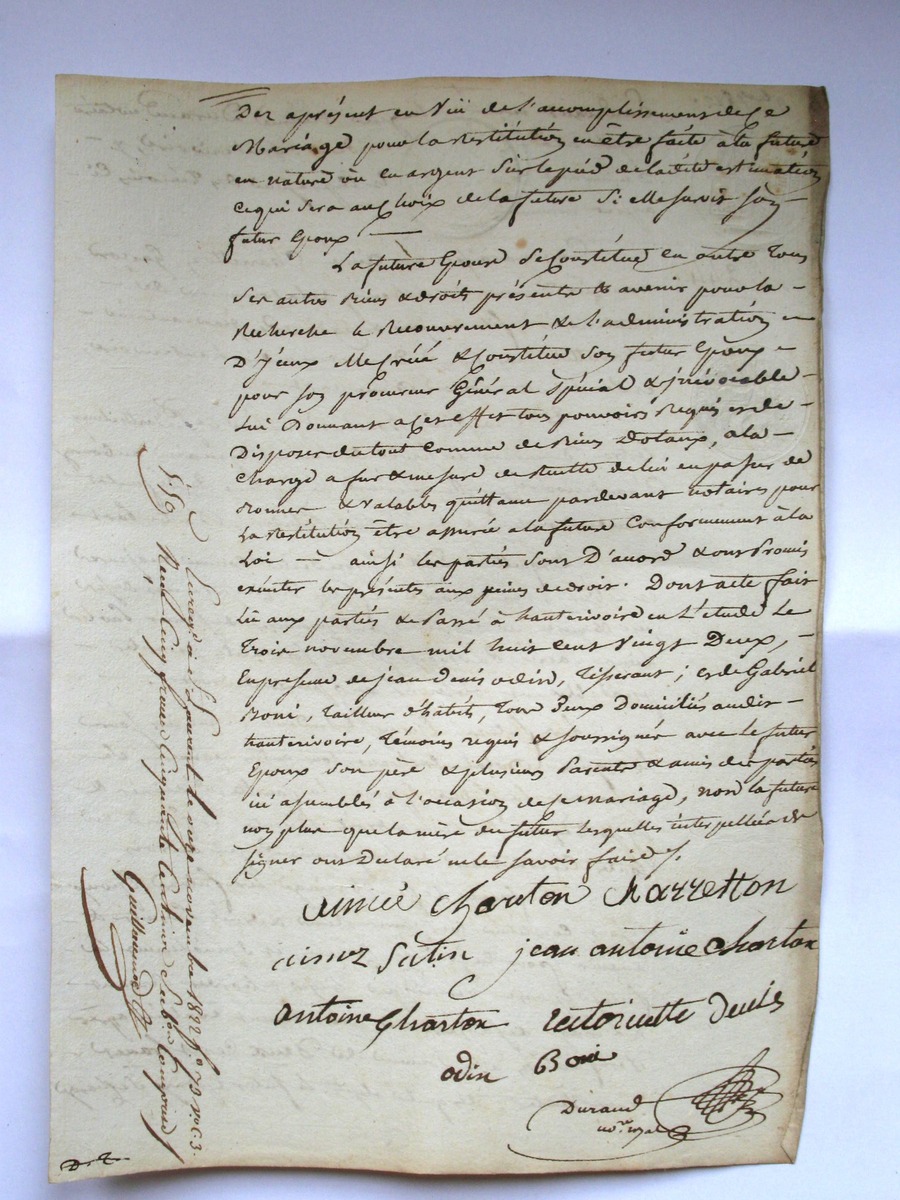 Dez aprésent en Vüe de l'accomplissement de Ce
Mariage pour la restitution en être faite à la future
en nature ou en argent Sur le pied de ladite estimation
Ce qui Sera au Choix de la future Si elle survit Son
futur Epoux —
La future Epouse Se Constitue en outre Tous
Ses autres Biens & droits présents & avenir pour la
Recherche le Recouvrement & l'administration
D'Iceux elle Créé & Constitue Son futur Epoux
pour Son procureur Général Spécial & irrévocable
Lui Donnant a Cet effet tous pouvoirs Requis et de
Disposer du tout Comme de Biens Dotaux, a la
Charge a fur & mesure de recette de lui en passer de
Bonnes & Valables quittance pardevant notaires pour
La restitution être assurée a la future Conformement à la
Loi — ainsi les parties Sont D'acord & ont Promis
exécuter les présentes aux peines de droit. Dont acte fait
Lu aux parties & Passé à hauterivoire en L'etude Le
Trois novembre mil huit Cent Vingt Deux,
En presence de jean Denis odin, Tisserant; et de Gabriel
Boni, Tailleur d'habits, Tous Deux Domiciliés audit
hauterivoire, Témoins requis & Soussignés avec Le futur
Epoux Son père & plusieurs Parents & amis des parties
ici assemblés à l'occasion de ce mariage, non la future
non plus que la mère du futur Lesquelles interpellées de
Signer ont Déclaré ne le Savoir faire
aimée Charton Charretton
jean antoine Charton
antoine Charton Denis
odin Boni
Durand
no.re royal
Enregé à St Laurent le onze novembre 1822 fo 73 vo C. 3.
Reçu Cinq francs Cinquante Centimes Subon Comprise
Guillaumod